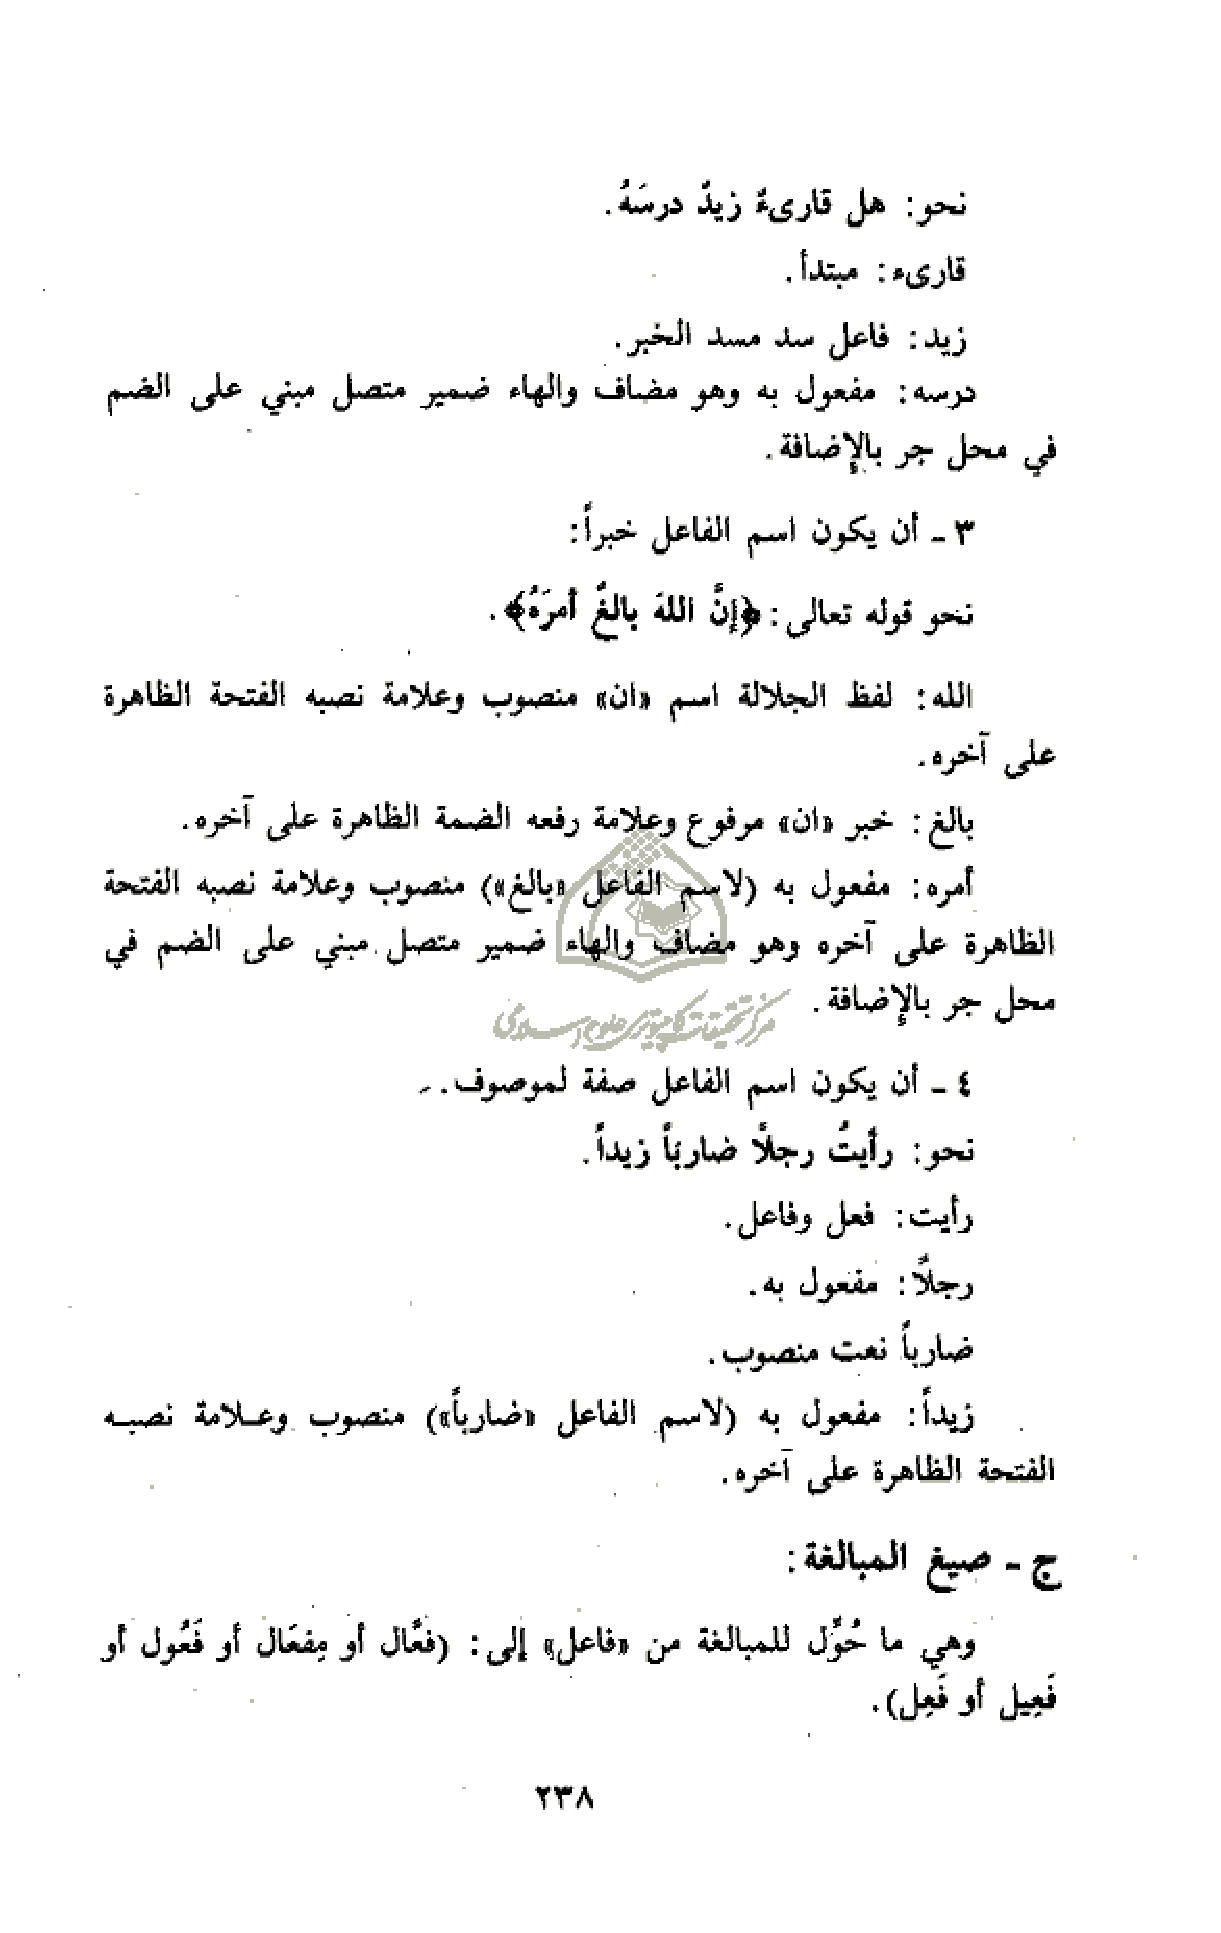 نحو: هل قارىءٌ زيدٌ درسَهُ.
قارىء: مبتدأ.
زيد: فاعل سد مسد الخبر.
درسه: مفعول به وهو مضاف والهاء ضمير متصل مبني على الضم
في محل جر بالإضافة.
٣ - أن يكون اسم الفاعل خبراً:
نحو قوله تعالى: ﴿إنَّ اللهَ بالغٌ أمرَهُ﴾.
الله: لفظ الجلالة اسم «ان» منصوب وعلامة نصبه الفتحة الظاهرة
على آخره.
بالغ: خبر «ان» مرفوع وعلامة رفعه الضمة الظاهرة على آخره.
أمره: مفعول به (لاسم الفاعل «بالغ») منصوب وعلامة نصبه الفتحة
الظاهرة على آخره وهو مضاف والهاء ضمير متصل مبني على الضم في
محل جر بالإضافة.
مركز تحقيقات كامپيوترى علوم اسلامى
٤ - أن يكون اسم الفاعل صفة لموصوف.
نحو: رأيتُ رجلًا ضارباً زيداً.
رأيت: فعل وفاعل.
رجلًا: مفعول به.
ضارباً نعت منصوب.
زيداً: مفعول به (لاسم الفاعل «ضارباً») منصوب وعـلامة نصبـه
الفتحة الظاهرة على آخره.
ج - صيغ المبالغة:
وهي ما حُوِّل للمبالغة من «فاعل» إلى: (فعَّال أو مِفعَال أو فَعُول أو
فَعِيل أو فَعِل).
٢٣٨